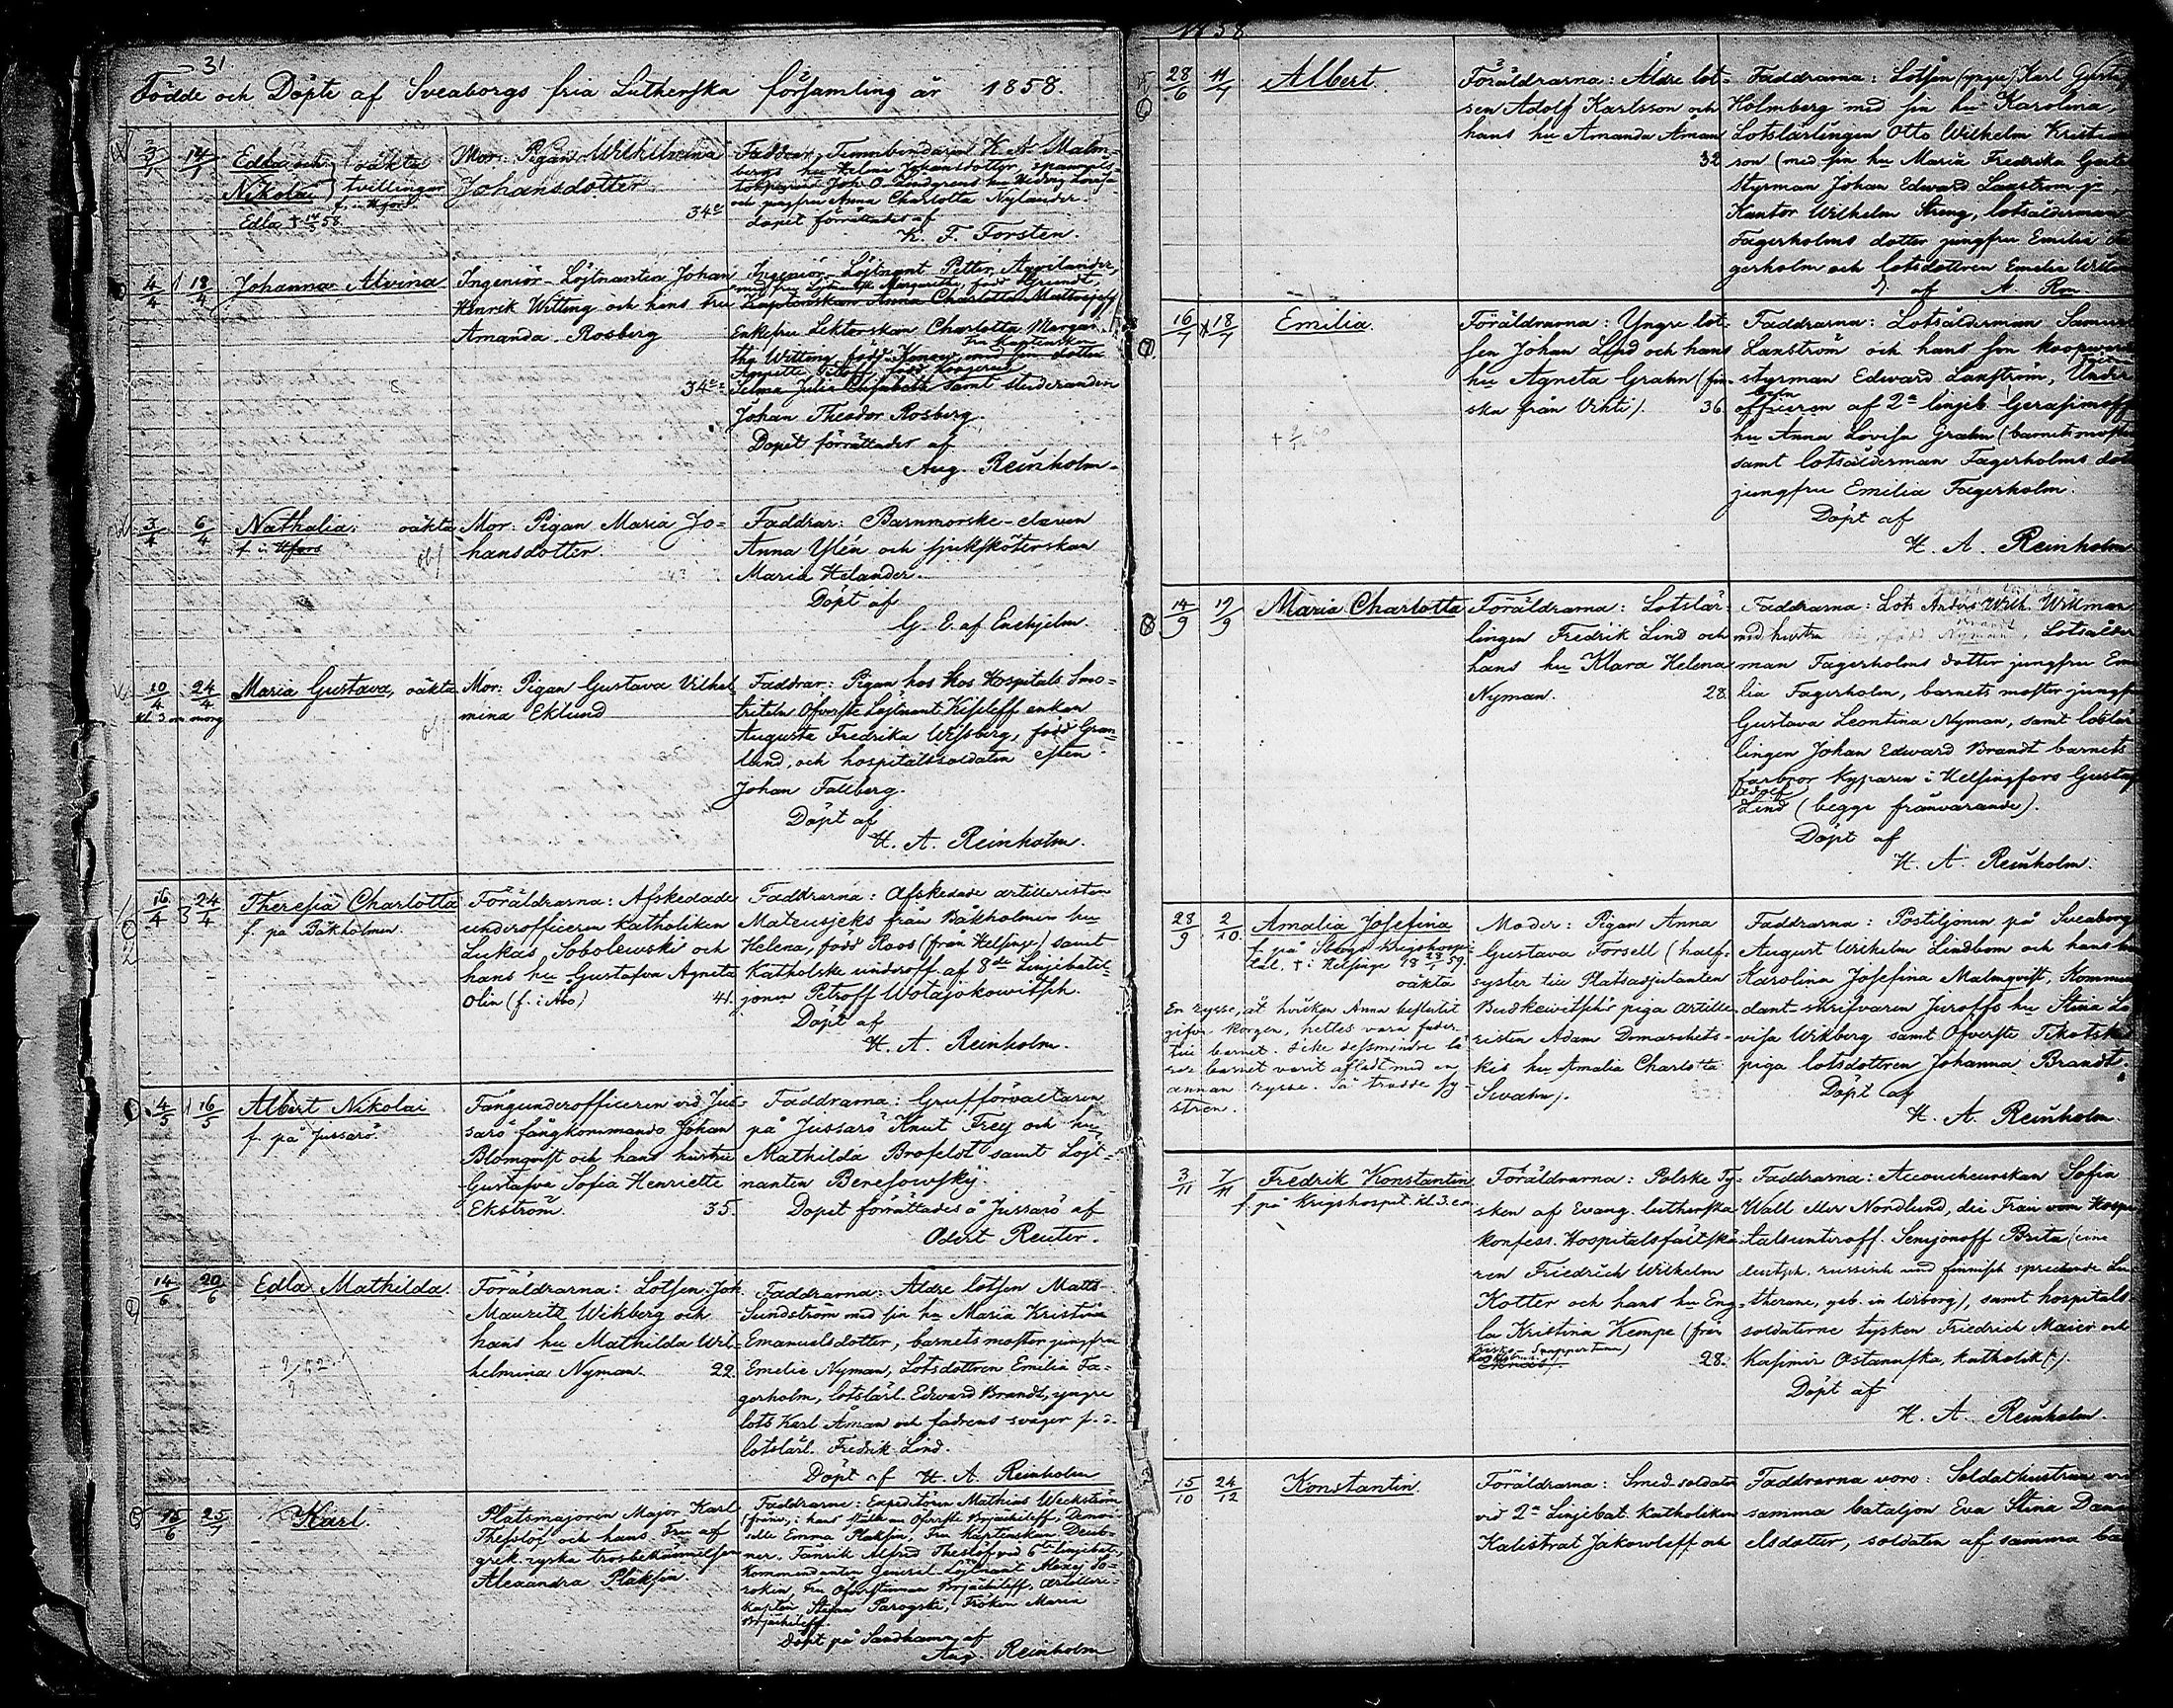 31
Födde och Döpte af Sveaborgs fria Lutherska församling år 1858.
Edla och oäkta
Nikolai tvillingar
f. i Hfors
Edla † 14/5 58.
Mor: Pigan Wilhelmina
Johansdotter
34 år
Faddrar, Tunnbindaren K. A. Malm-
bergs hu Helena Johansdotter,
Joh. O. Lindgrens hu Hedvig Lovisa
och jungfru Anna Charlotta Nylander.
Dopet förrättades af
K. F. Forsten.
4/4 1 18/4
Johanna Alvina
Ingeniör-Löjtnanten Johan
Henrik Witting och hans fru
Amanda Rosberg
34 år
Ingeniör-Löjtnant Petter
Kaptenskan Anna Charlotta
Enkefru Lektorskan Charlotta Marga-
tha Witting född
Selma Julia Elisabeth samt studeranden
Johan Theodor Rosberg.
Dopet förrättades af
Aug. Reinholm.
3/4 6/4
Nathalia. oäkta
f. i Hfors
Mor: Pigan Maria Jo-
hansdotter.
Faddrar: Barnmorske-eleven
Anna Ylén och sjuksköterskan
Maria Helander.
Döpt af
G. E. af Enehjelm.
10/4 24/4
kl. 3 om morg
Maria Gustava, oäkta
Mor: Pigan Gustava Vilhel-
mina Eklund
Faddrar: Pigan hos Hospitals Smo-
triteln Öfverste Löjtnant Kisileff enkan
Augusta Fredrika Wissberg, född Gran-
lund, och hospitalssoldaten esten
Johan Falkberg.
Döpt af
H. A. Reinholm.
16/4 3 24/4
Theresia Charlotta
f. på Båkholmen.
Föräldrarna: Afskedade
underofficeren katholiken
Lukas Sobolewski och
hans hu Gustafva Agneta
Olin (f. i Åbo) 41.
Faddrarna: Afskedade artilleristen
Mateusjeks från Båkholmen hu
Helena, född Roos (från Helsinge) samt
Katholske underoff. af 8de Linjebatal-
jonen Petroff Wotajakowitsch.
Döpt af
H. A. Reinholm.
4/5 1 16/5
Albert Nikolai
f. på Jussarö.
Fångunderofficeren vid Jus-
sarö fångkommando Johan
Blomqvist och hans hustru
Gustafva Sofia Henriette
Ekström 35.
Faddrarna: Grufförvaltaren
på Jussarö Knut Frey och hu
Mathilda Brofeldt samt Löjt-
nanten Beresowsky.
Dopet förrättades å Jussarö af
Odert Reuter.
14/6 20/6
Edla Mathilda.
Föräldrarna: Lotsen Joh.
Mauritz Wikberg och
hans hu Mathilda Wil-
helmina Nyman. 22.
Faddrarna: Äldre lotsen Matts
Sundström med sin hu Maria Kristina
Emanuelsdotter, barnets moster jungfru
Emelie Nyman, Lotsdottren Emilia Fa-
gerholm, lotslärl. Edward Brandt, yngre
lots Karl Åman och fadrens svåger f. d.
lotslärl. Fredrik Lind.
Döpt af H. A. Reinholm
15/6 25/7
Karl.
Platsmajoren Major Karl
Theslöf och hans Fru af
grek. ryska trosbekännelsen
Alexandra Plaksin
Faddrarne: Expeditören Mathias Weckström
(frånv., i hans ställe
selle Emma Plaksin, Fru Kaptenskan Deub-
ner. Fänrik Alfred Theslöf vid 6te linjebat.,
Kommendanten General-Löjtnant Alexej So-
rokin, Fru Öfverstinnan Brjächileff, Artilleri-
kapten Stefan Parogski, Fröken Maria
Brjächileff.
Döpt på Sandhamn af
Aug. Reinholm
1858
28/6 11/7
Albert.
Föräldrarna: Äldre lot-
sen Adolf Karlsson och
hans hu Amanda Åman
32
Faddrarna: Lotsen (yngre) Karl Gustaf
Holmberg med sin hu Karolina,
Lotslärlingen Otto Wilhelm Kristian-
son (med sin hu Maria Fredrika
Styrman Johan Edward Lanström
Kantor Wilhelm Streng, lotsålderman
Fagerholms dotter jungfru Emilia Fa-
gerholm och lotsdottren Emelie
D. af A. Rm.
16/7 18/7
Emilia.
Föräldrarna: Yngre lot-
sen Johan Lind och hans
hu Agneta Grahn (fin-
ska från Vihti). 36.
Faddrarna: Lotsålderman Samuel
Lanström och hans son
styrman Edward Lanström, Under-
officeren af 2a linjeb. Gerasimoffs
hu Anna Lovisa Grahn (barnets moster)
samt lotsålderman Fagerholms dotter
jungfru Emilia Fagerholm.
Döpt af
H. A. Reinholm
14/9 19/9
Maria Charlotta
Föräldrarna: Lotslär-
lingen Fredrik Lind och
hans hu Klara Helena
Nyman. 28.
Faddrarna: Lots Anders Wilh. Wikman
med hustru Lotsålder-
man Fagerholms dotter jungfru Emi-
lia Fagerholm, barnets moster jungfru
Gustava Leontina Nyman, samt lotslär-
lingen Johan Edward Brandt barnets
farbror kyparen i Helsingfors Gustaf
Adolf
Lind (begge frånvarande).
Döpt af
H. A. Reinholm.
28/9 2/10
Amalia Josefina
f. på Sborgs krigshospi-
tal. † i Helsinge 18 28/1 59.
oäkta
En rysse, åt hvilken Anna beslutit
gifva korgen, helles vara fader
till barnet. Icke dessmindre lä-
rer barnet varit afladt med en
annan rysse. Så trodde sy-
stren.
Moder: Pigan Anna
Gustava Forsell (half-
syster till Platsadjutanten
Budkewitschs piga artille-
risten Adam Domaschets-
kis hu Amalia Charlotta
Swahn).
Faddrarna: Postiljonen på Sveaborg
August Wilhelm Lindbom och hans hu
Karolina Josefina Malmqvist, Kommen-
dant-skrifvaren Juroffs hu Stina Lo-
visa Wikberg samt Öfverste
piga lotsdottren Johanna Brandt.
Döpt af
H. A. Reinholm.
3/11 7/11
Fredrik Konstantin
f. på Krigshospit. kl. 3. e.m
Föräldrarna: Polske Ty-
sken af Evang. lutherska
konfess. Hospitalsfältskä-
ren Friedrich Wilhelm
Kotter och hans hu Eng-
la Kristina Kempe (från
28.
Faddrarna: Accoucheurskan Sofia
Wall eller Nordlund, die Frau vom Hospi-
talsunteroff. Semjonoff Brita (eine
deutsch. russisch und finnisch sprechende Lu-
therane, geb. in Wiborg), samt hospitals-
soldaterne tysken Friedrich Maier och
Kasimir Astanafka, katholik (?).
Döpt af
H. A. Reinholm.
15/10 24/12
Konstantin.
Föräldrarna: Smed-soldaten
vid 2a Linjebat. katholiken
Kalistrat Jakowleff och
Faddrarna voro: Soldathustrun vid
samma bataljon Eva Stina Dani-
elsdotter, soldaten af samma ba-